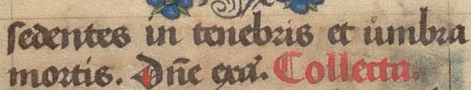 sedentes in tenebris et umbra
mortis. Dñe exa. Collecta.